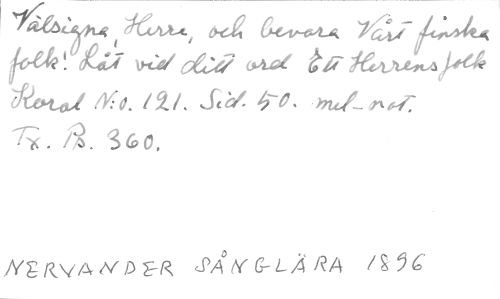 Välsigna, Herre, och bevara Vårt finska
folk! Låt vid ditt ord Ett Herrens folk
Koral N:o. 121. Sid. 50. mel-not.
Tx. Ps. 360.
NERVANDER SÅNGLÄRA 1896